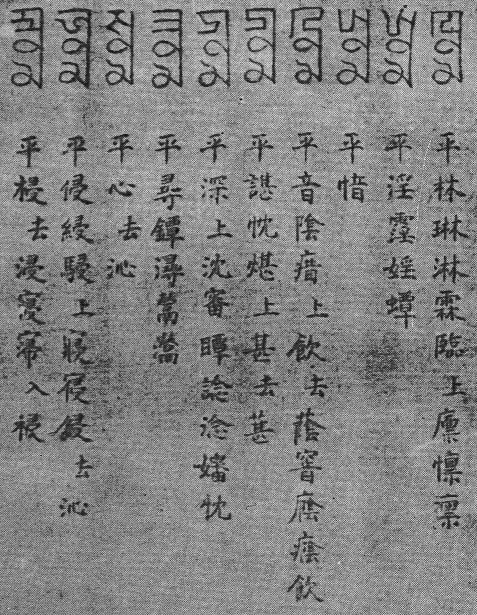 ꡒꡞꡏ 平梫去浸寖入祲
ꡑꡞꡏ 平侵綅駸上寢鋟去沁
ꡛꡞꡏ 平心去沁
ꡕꡞꡏ 平尋鐔潯鬵
平深上沈審瞫諗淰嬸忱
平諶忱煁上甚去甚
ꡖꡞꡏ 平音陰瘖上飲去蔭窨廕癊飲
平愔
ꡗꡞꡏ 平淫霪婬蟫
ꡙꡞꡏ 平林琳淋霖臨上廩懍凜